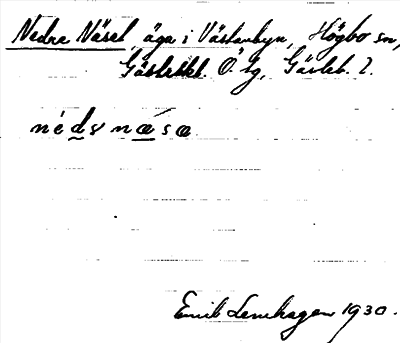 Nedre Näset, äga i Västanbyn, Högbo sn,
Gästrikl. Ö. tg, Gävleb. l.
nédr næsə
Emil Lenhagen 1930.